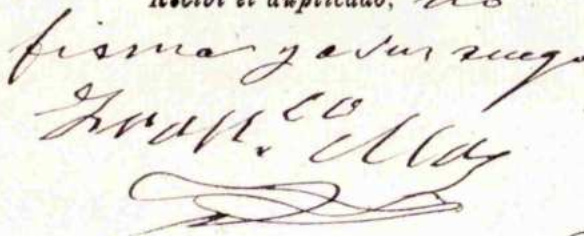 Recibí el duplicado, no
firma y a su ruego
Fran.co Mas